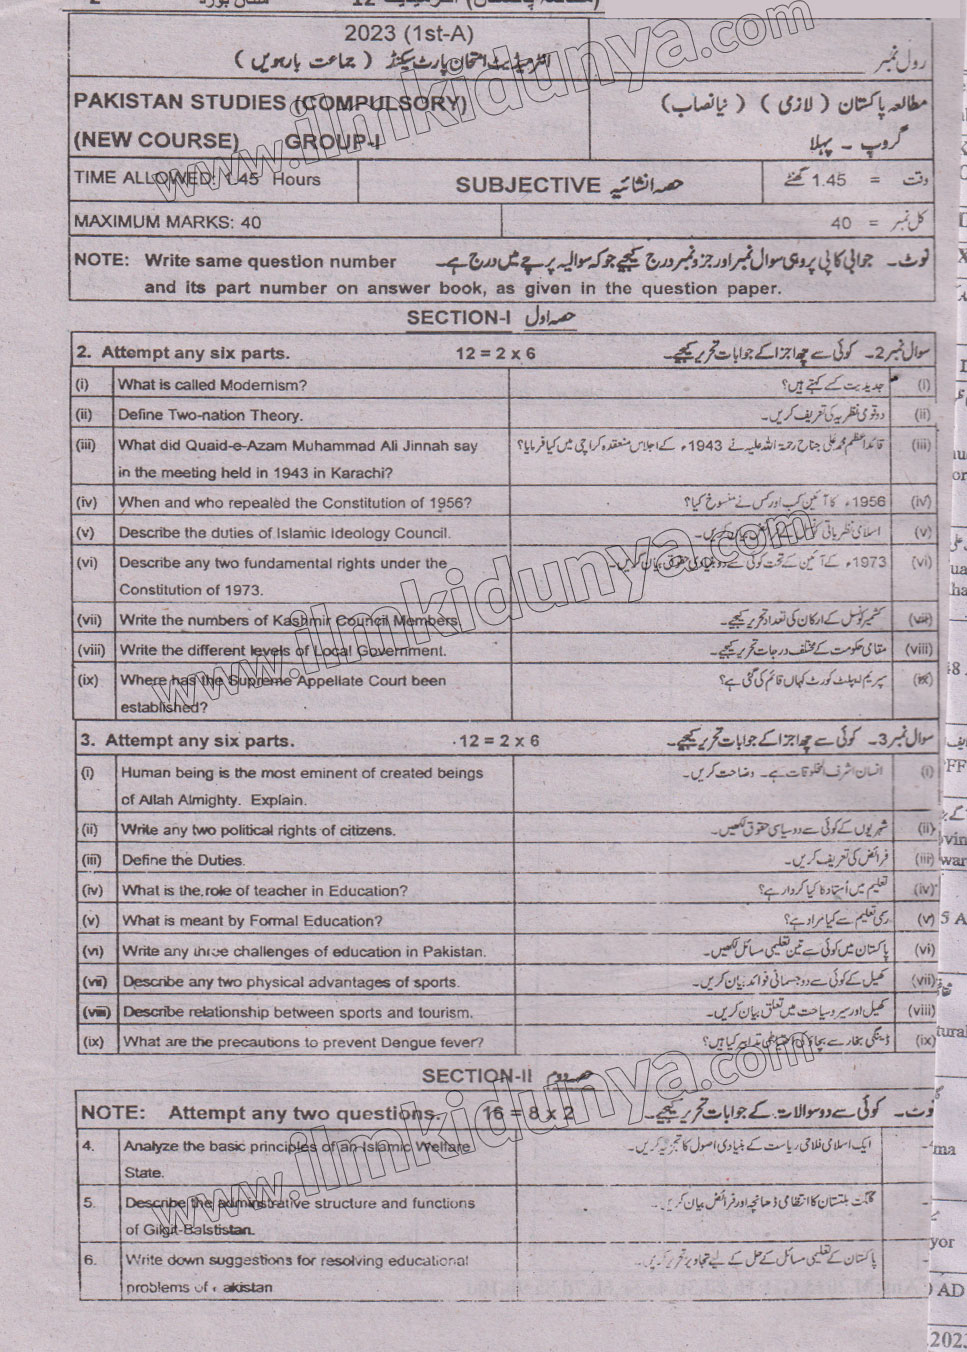 2023 (1st-A)
رول نمبر انٹرمیڈیٹ امتحان پارٹ سیکنڈ ( جماعت بارہویں )
PAKISTAN STUDIES (COMPULSORY) مطالعہ پاکستان ( لازمی ) ( نیا نصاب )
(NEW COURSE) GROUP-I گروپ - پہلا
TIME ALLOWED: 1.45 Hours SUBJECTIVE حصہ انشائیہ وقت = 1.45 گھنٹے
MAXIMUM MARKS: 40 کل نمبر = 40
NOTE: Write same question number نوٹ۔ جوابی کاپی پر وہی سوال نمبر اور جزو نمبر درج کیجیے جو کہ سوالیہ پرچے میں درج ہے۔
and its part number on answer book, as given in the question paper.
SECTION-I حصہ اول
2. Attempt any six parts. 12 = 2 x 6 سوال نمبر 2۔ کوئی سے چھ اجزا کے جوابات تحریر کیجیے۔
(i) What is called Modernism? جدیدیت کسے کہتے ہیں؟ (i)
(ii) Define Two-nation Theory. دو قومی نظریہ کی تعریف کریں۔ (ii)
(iii) What did Quaid-e-Azam Muhammad Ali Jinnah say قائداعظم محمد علی جناح رحمۃ اللہ علیہ نے 1943ء کے اجلاس منعقدہ کراچی میں کیا فرمایا؟ (iii)
in the meeting held in 1943 in Karachi?
(iv) When and who repealed the Constitution of 1956? 1956ء کا آئین کب اور کس نے منسوخ کیا؟ (iv)
(v) Describe the duties of Islamic Ideology Council. اسلامی نظریاتی بیان کریں۔ (v)
(vi) Describe any two fundamental rights under the 1973ء کے آئین کے تحت کوئی سے دو بنیادی حقوق بیان کریں۔ (vi)
Constitution of 1973.
(vii) Write the numbers of Kashmir Council Members. کشمیر کونسل کے ارکان کی تعداد تحریر کیجیے۔ (vii)
(viii) Write the different levels of Local Government. مقامی حکومت کے مختلف درجات تحریر کیجیے۔ (viii)
(ix) Where has the Supreme Appellate Court been سپریم اپیلٹ کورٹ کہاں قائم کی گئی ہے؟ (ix)
established?
3. Attempt any six parts. 12 = 2 x 6 سوال نمبر 3۔ کوئی سے چھ اجزا کے جوابات تحریر کیجیے۔
(i) Human being is the most eminent of created beings انسان اشرف المخلوقات ہے۔ وضاحت کریں۔ (i)
of Allah Almighty. Explain.
(ii) Write any two political rights of citizens. شہریوں کے کوئی سے دو سیاسی حقوق لکھیں۔ (ii)
(iii) Define the Duties. فرائض کی تعریف کریں۔ (iii)
(iv) What is the role of teacher in Education? تعلیم میں اُستاد کا کیا کردار ہے؟ (iv)
(v) What is meant by Formal Education? رسمی تعلیم سے کیا مراد ہے؟ (v)
(vi) Write any three challenges of education in Pakistan. پاکستان میں کوئی سے تین تعلیمی مسائل لکھیں۔ (vi)
(vii) Describe any two physical advantages of sports. کھیل کے کوئی سے دو جسمانی فوائد بیان کریں۔ (vii)
(viii) Describe relationship between sports and tourism. کھیل اور سیر و سیاحت میں تعلق بیان کریں۔ (viii)
(ix) What are the precautions to prevent Dengue fever? ڈینگی بخار سے بچاؤ کی احتیاطی تدابیر کیا ہیں؟ (ix)
SECTION-II حصہ دوم
NOTE: Attempt any two questions. 16 = 8 x 2 نوٹ۔ کوئی سے دو سوالات کے جوابات تحریر کیجیے۔
4. Analyze the basic principles of an Islamic Welfare ایک اسلامی فلاحی ریاست کے بنیادی اصول کا تجزیہ کریں۔
State.
5. Describe the administrative structure and functions گلگت بلتستان کا انتظامی ڈھانچہ اور فرائض بیان کریں۔
of Gilgit-Balstistan.
6. Write down suggestions for resolving educational پاکستان کے تعلیمی مسائل کے حل کے لیے تجاویز تحریر کریں۔
problems of akistan
www.ilmkidunya.com
www.ilmkidunya.com
www.ilmkidunya.com